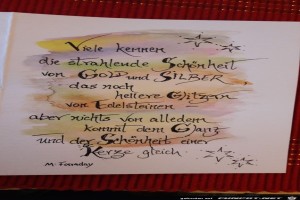 Viele kennen
die strahlende Schönheit
von GOLD und SILBER
das noch
hellere Glitzern
von Edelsteinen
aber nichts von alledem
kommt dem Glanz
und der Schönheit einer
Kerze gleich.